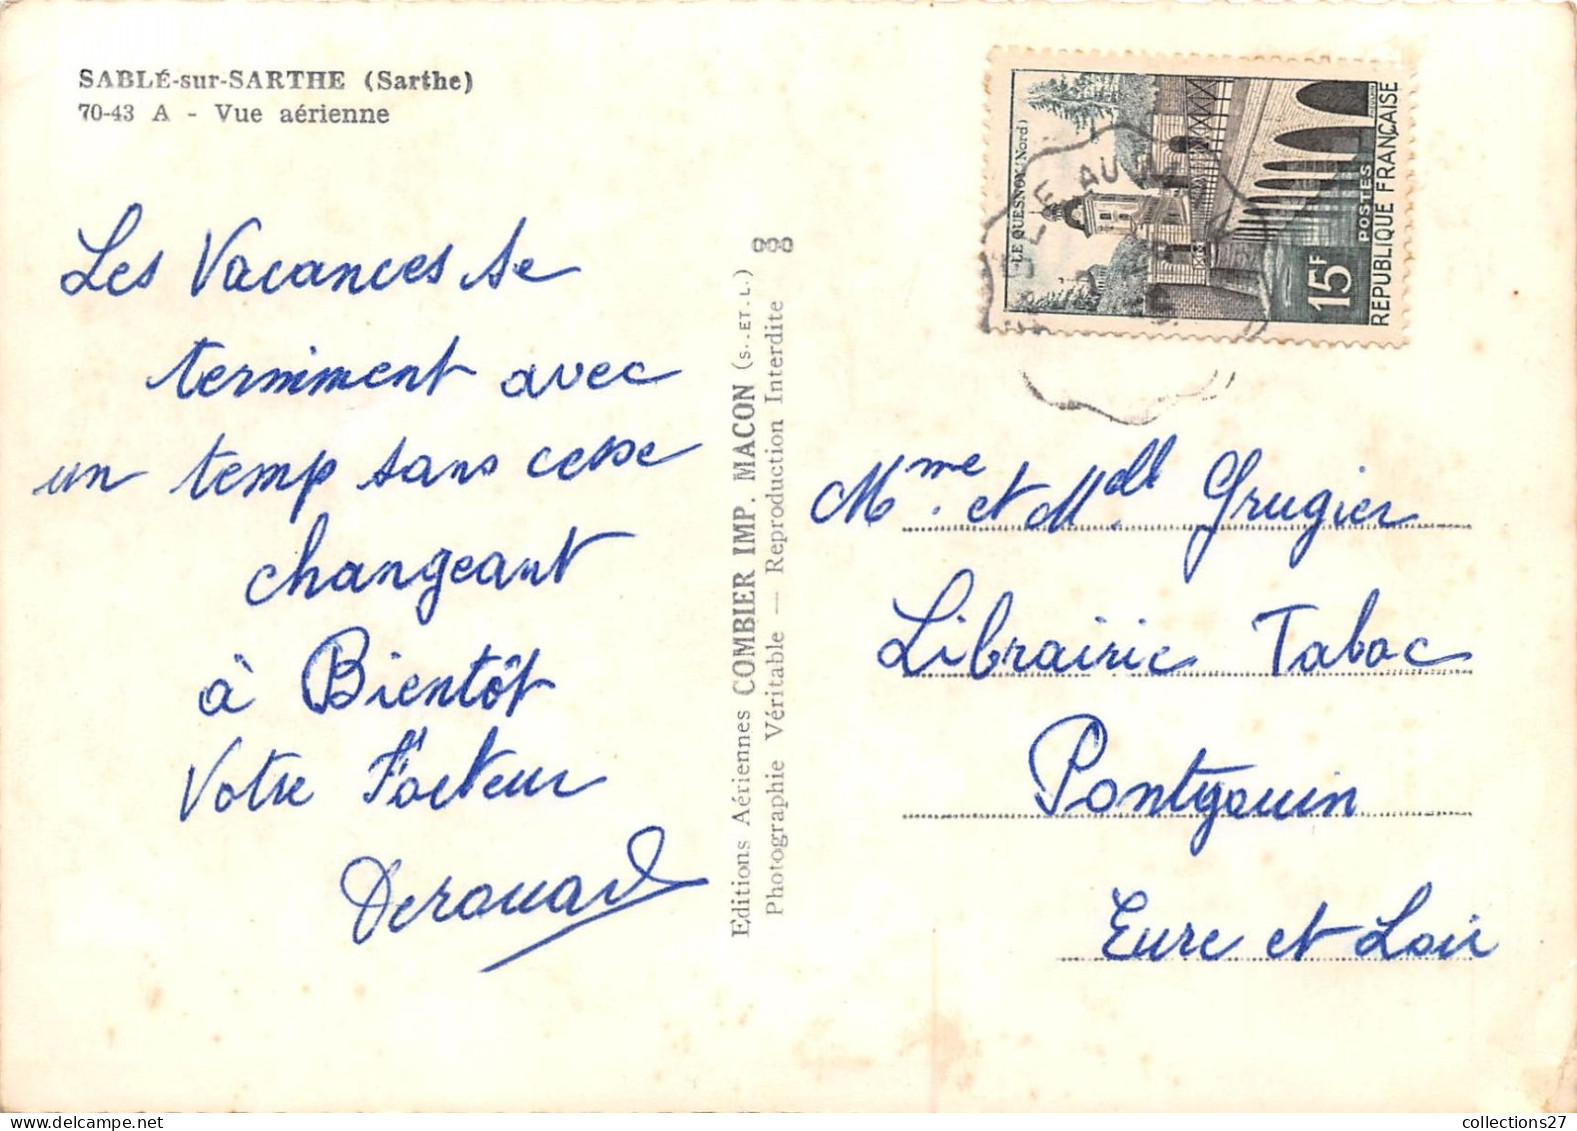 SABLÉ-sur-SARTHE (Sarthe)
70-43 A - Vue aérienne
Les Vacances se
terminment avec
un temp sans cesse
changeant
à Bientôt
Votre Facteur
Derouard
Editions Aériennes COMBIER IMP. MACON (S.-ET-L.)
Photographie Véritable — Reproduction Interdite
LE QUESNOY (Nord)
POSTES
15F
REPUBLIQUE FRANÇAISE
Mme. et Mdlle Grugier
Librairie Tabac
Pontgouin
Eure et Loir
collections27